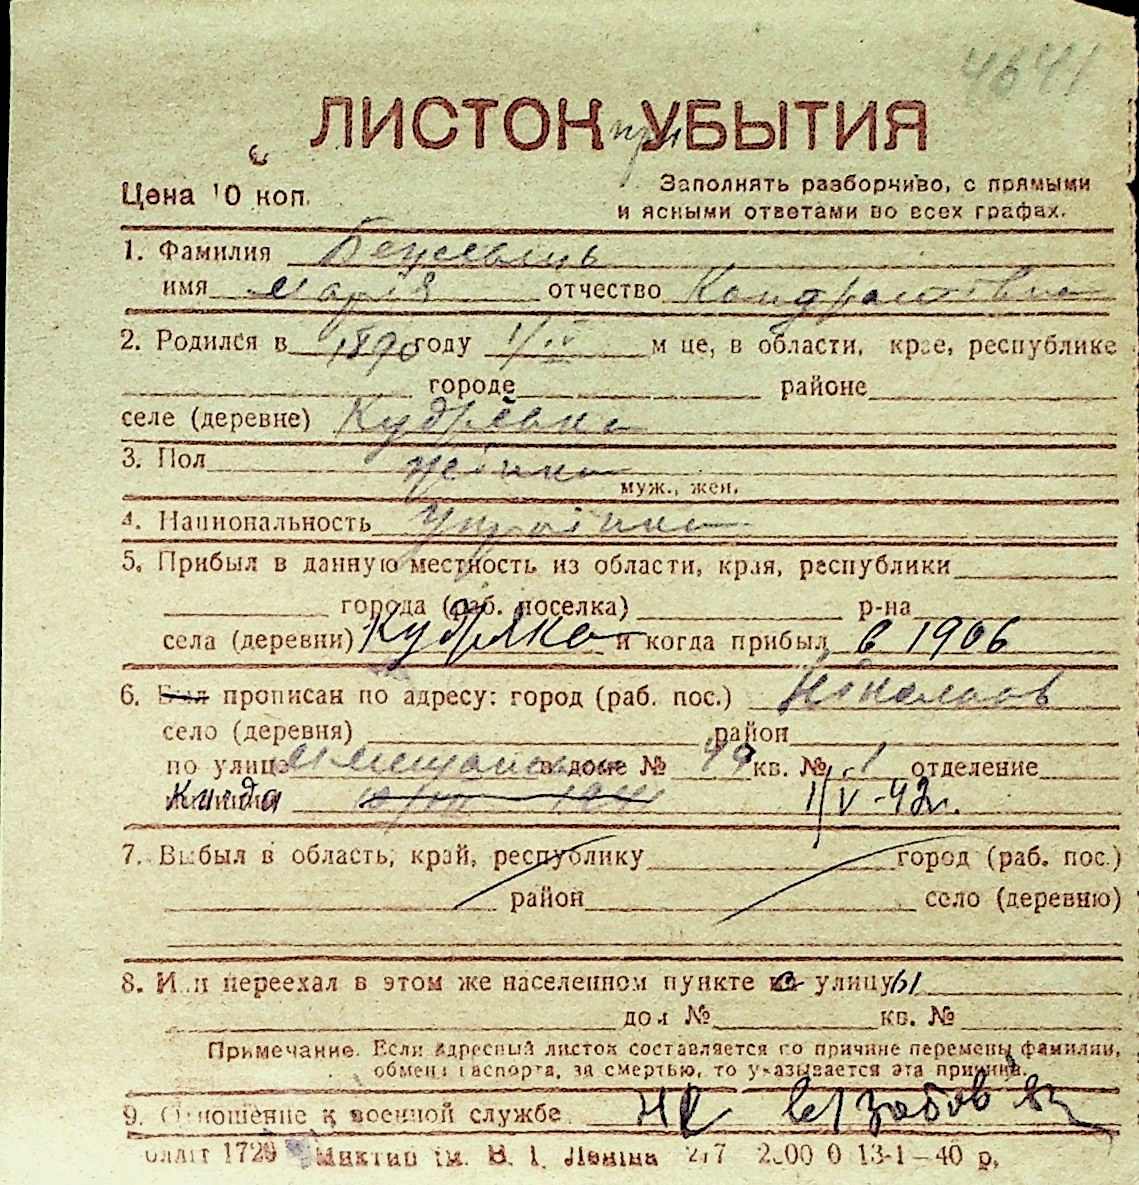 4641
ЛИСТОК при УБЫТИЯ
Цена 10 коп.
Заполнять разборчиво, с прямыми
и ясными ответами во всех графах.
1. Фамилия
имя Марія отчество Кондратовна
2. Родился в 1890 году 1/IV м-це, в области, крае, республике
городе районе
селе (деревне) Кудрявка
3. Пол жінка
муж., жен.
4. Национальность Українка
5. Прибыл в данную местность из области, края, республики
города (раб. поселка) р-на
села (деревни) Кудряка и когда прибыл в 1906
6. Был прописан по адресу: город (раб. пос.) Ніколаов
село (деревня) район
по улице М Мещанська в доме № 49 кв. № 1 отделение
1/V-42г.
7. Выбыл в область, край, республику город (раб. пос.)
район село (деревню)
8. Или переехал в этом же населенном пункте с улицы
дом № кв. №
Примечание. Если адресный листок составляется по причине перемены фамилии,
обмена паспорта, за смертью, то указывается эта причина.
9. Отношение к военной службе не
облліт 1726 Миктип ім. В. І. Леніна 2000 0 13-1-40 р.